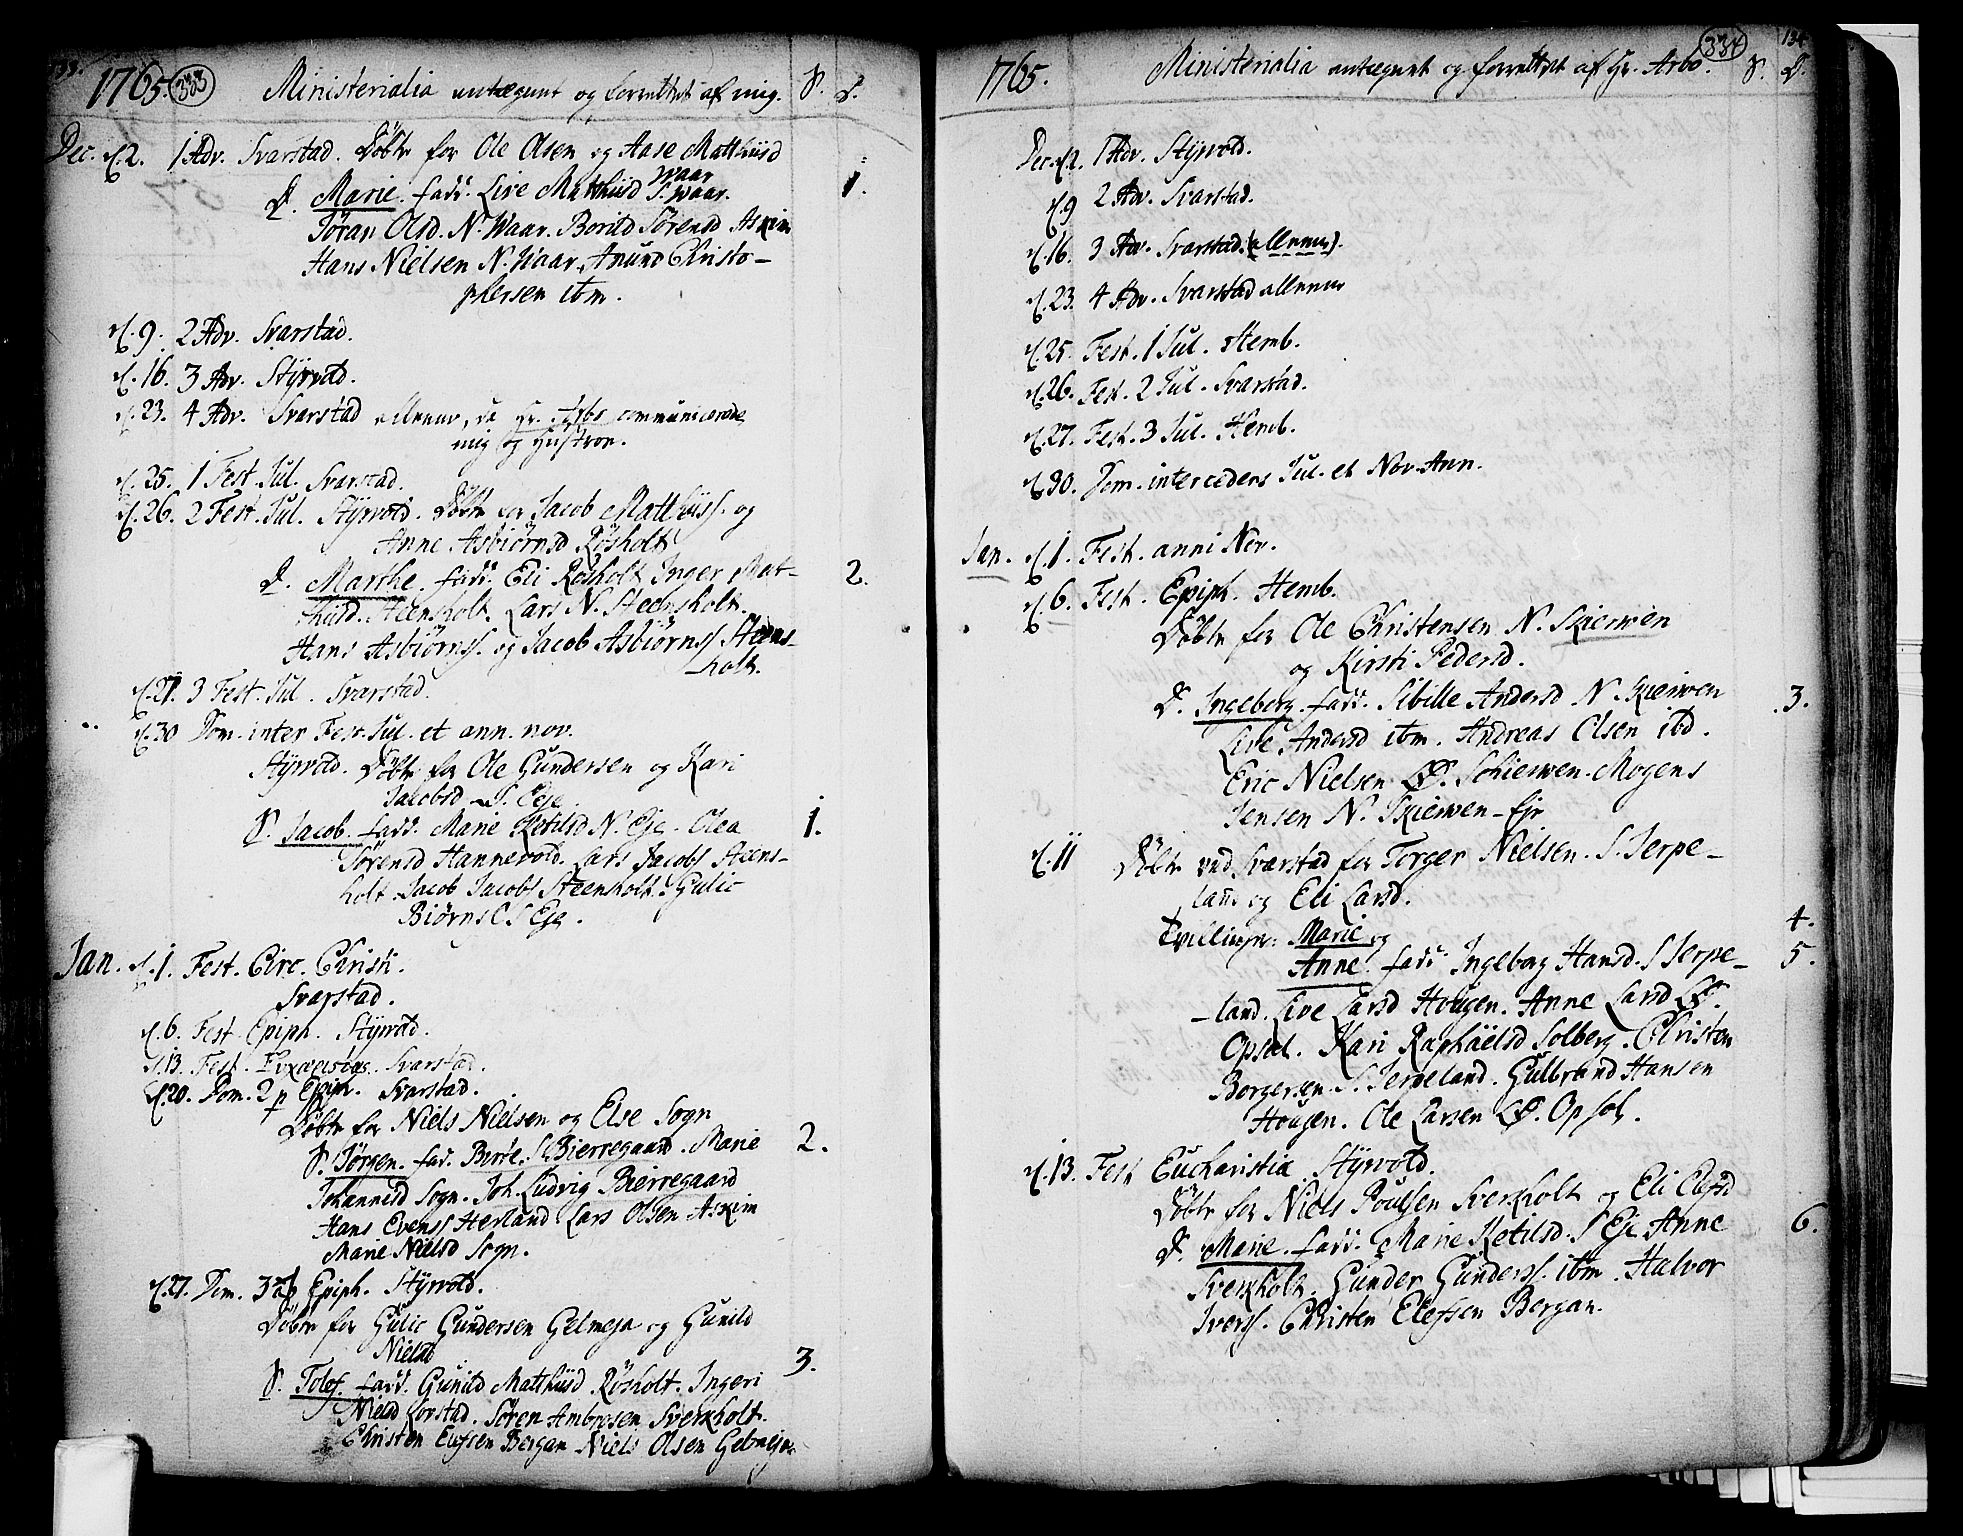 133.
1765. 333 Ministerialia antegnet og forrettet af mig. S. D.
Dec. d. 2. 1 Adv. Svarstad. Döbte for Ole Olsen og Aase Matthiisd
Waar
D. Marie. fadd. Live Matthiisd S. Waar. 1.
Jöran Olsd. N. Waar. Borild Sörensd Askim
Hans Nielsen N. Waar, Anund Christo-
phersen ibm.
d. 9. 2 Adv. Svarstad.
d. 16. 3 Adv. Styrvold.
d. 23. 4 Adv. Svarstad allene, da Hr. Arbo communicerede
mig og Hustroe.
d. 25. 1 Fest. Jul. Svarstad.
d. 26. 2 Fest. Jul. Styrvold. Döbte for Jacob Matthiiss. og
Anne Asbiörnsd Rösholt
D. Marthe. fadd. Eli Rösholt Inger Mat- 2.
thiisd. Steensholt. Lars N. Steensholt.
Hans Asbiörnss. og Jacob Asbiörnss Steens-
holt.
d. 27. 3 Fest. Jul. Svarstad.
d. 30 Dom. inter Fest. Jul. et ann. nov.
Styrvold. Döbte for Ole Gundersen og Kari
Jacobsd S. Eje.
S. Jacob. fadd. Marie Ketilsd N. Eje. Olea 1.
Sörensd Hannevold. Lars Jacobs Steens-
holt. Jacob Jacobs Steensholt. Gulic
Biörns S Eje.
Jan. d. 1. Fest. Circ. Christi.
Svarstad.
d. 6. Fest. Epiph. Styrvold.
d. 13. Fest. Svarstad.
d. 20. Dom. 2 p Epiph. Svarstad.
Döbte for Niels Nielsen og Else Sogn
S. Jörgen. fad. Birte. S Bierregaard. Marie 2.
Johannisd Sogn. Joh. Ludvig Bierregaard
Hans Evenss Herland Lars Olsen Askim
Marie Nielsd Sogn.
d. 27. Dom. 3 p Epiph. Styrvold.
Döbte for Gulic Gundersen Gelmeja og Gunild
Nielsd
S. Tolef. fadd. Gunild Matthiisd Rösholt. Ingeri 3.
Nielsd Lorstad. Sören Ambrosen Sverkholt.
Christen Elefsen Bergan Niels Olsen Gelmeja.
334 134
1765. Ministerialia antegnet og forrettet af Hr. Arbo. S. D.
Dec. d. 2. 1 Adv. Styrvold.
d. 9 2 Adv. Svarstad.
d. 16. 3 Adv. Svarstad. (allene).
d. 23. 4 Adv. Svarstad allene
d. 25. Fest. 1 Jul. Hemb.
d. 26. Fest. 2 Jul. Svarstad.
d. 27. Fest. 3 Jul. Hemb.
d. 30. Dom. intercedens Jul. et Nov. Ann.
Jan. d. 1. Fest. anni Nov.
d. 6. Fest. Epiph. Hemb.
Döbte for Ole Christensen N. Skierven
og Kirsti Pedersd.
D. Ingeborg. fadd. Sibille Andersd N. Skierven 3.
Live Andersd ibm. Andreas Olsen ibd.
Eric Nielsen LØ. Schierven. Mogens
Jensen N. Skierven-Ejr
d. 11 Döbte ved Svarstad for Torger Nielsen. S. Jerpe-
land og Eli Larsd.
Tvillinger: Marie og 4.
Anne. fadd. Ingeborg Hansd. S Jerpe- 5.
-land. Live Larsd Hougen. Anne Larsd LØ.
Opsal. Kari Raphaëlsd Solberg. Christen
Borgersen. S. Jerpeland. Gulbrand Hansen
Hougen. Ole Larsen LØ. Opsal.
d. 13. Fest Eucharistiæ Styrvold.
Döbte for Niels Poulsen Sverkholt og Eli Elefsd
D. Marie. fadd. Marie Ketilsd. S Eje Anne 6.
Sverkholt. Gunder Gunderss. ibm. Halvor
Iverss. Christen Elefsen Bergan.